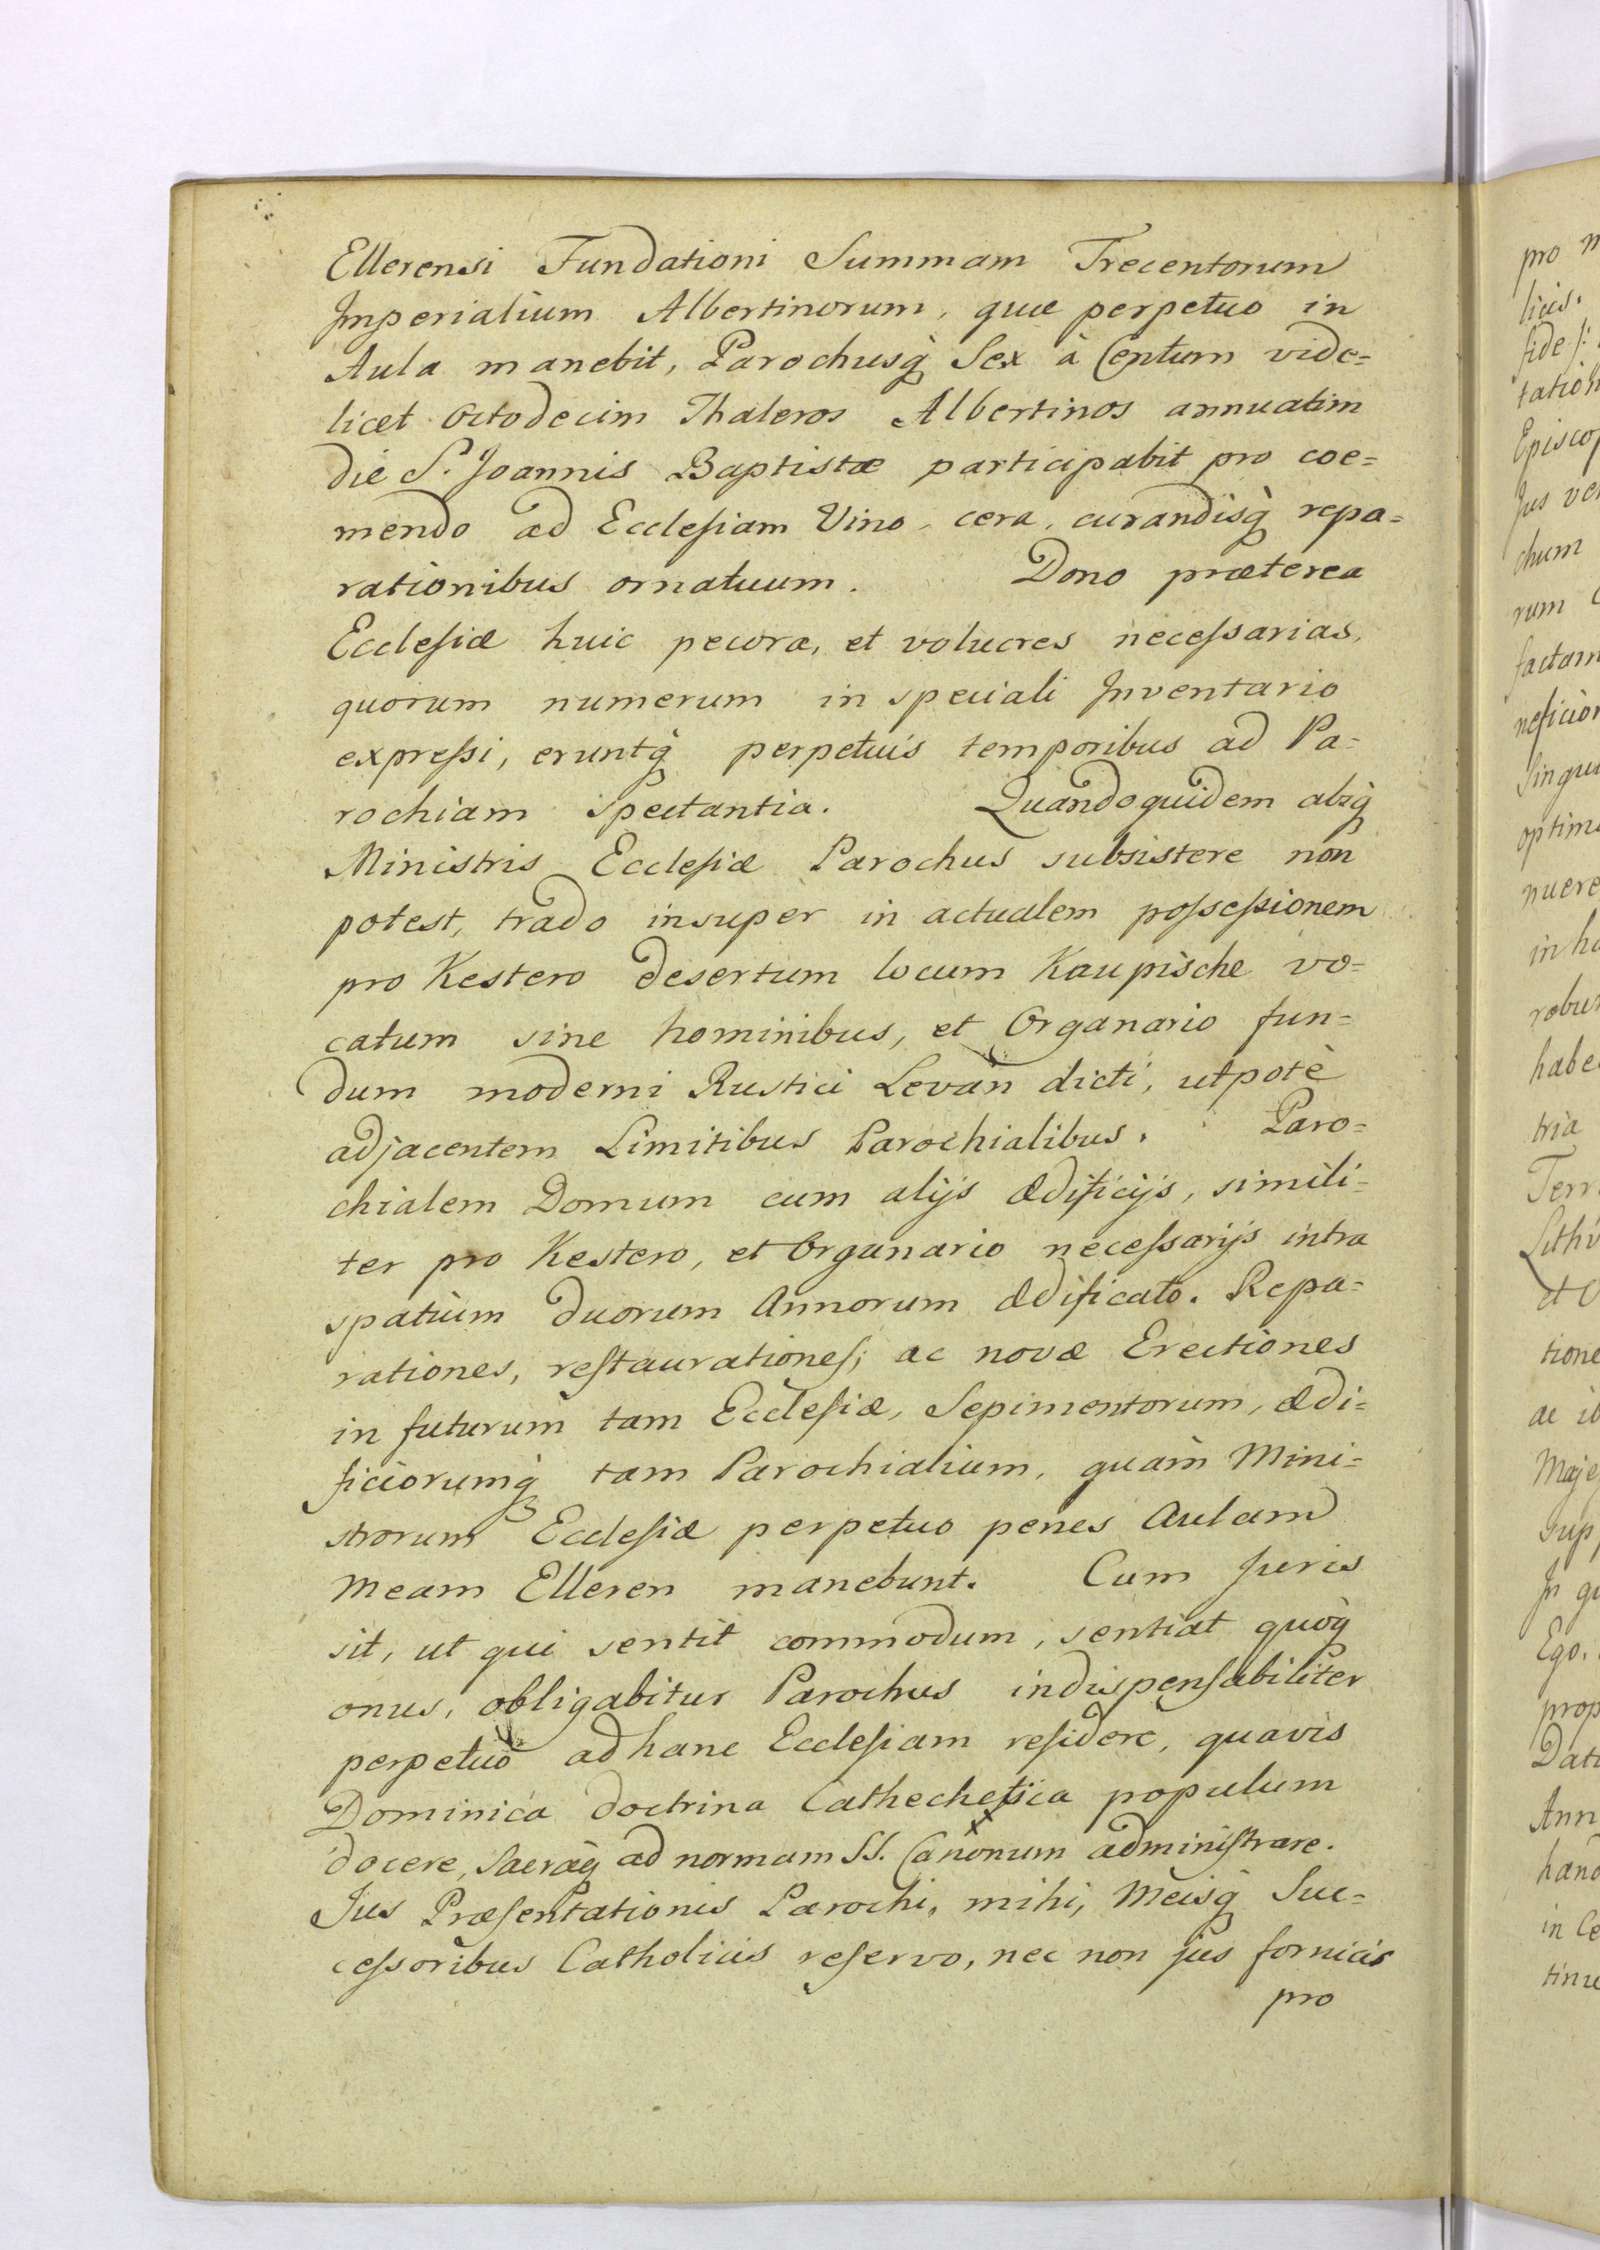 Ellerensi Fundationi Summam Trecentorum
Imperialium Albertinorum, quæ perpetuo in
Aula manebit, Parochusq̀ Sex à Centum vide=
licet Octodecim Thaleros Albertinos annuatim
die S. Joannis Baptistæ participabit pro coe=
mendo ad Ecclesiam Vino, cera, curandisq̀ repa=
rationibus ornatuum. Dono præterea
Ecclesiæ huic pecora, et volucres necessarias,
quorum numerum in speciali Inventario
expressi, eruntq̀ perpetuis temporibus ad Pa=
rochiam spectantia. Quandoquidem absq̀
Ministris Ecclesiæ Parochus subsistere non
potest, trado insuper in actualem possessionem
pro Kestero desertum locum Kaupische vo=
catum sine hominibus, et Organario fun=
dum moderni Rustici Levan dicti, utpotè
adjacentem Limitibus Parochialibus. Paro=
chialem Domum cum alijs ædificijs, simili=
ter pro Kestero, et Organario necessarijs intra
spatium duorum Annorum ædificato. Repa=
rationes, restaurationes, ac novæ Erectiones
in futurum tam Ecclesiæ, Sepimentorum, ædi=
ficiorumq̀ tam Parochialium, quàm Mini=
strorum Ecclesiæ perpetuo penes Aulam
Meam Elleren manebunt. Cum Juris
sit, ut qui sentit commodum, sentiat quoq̀
onus, obligabitur Parochus indispensabiliter
perpetuò ad hanc Ecclesiam residere, quavis
Dominica doctrina Cathechetica populum
docere, Sacraq̀ ad normam SS. Canonum administrare.
Jus Præsentationis Parochi, mihi, Meisq̀ Suc=
cessoribus Catholicis reservo, nec non jus fornicis
pro
pro
licis.
fide
Episcop
Jus
chum
rum
factam
neficio
Singu
optim
nuere
in
habe
tria
Terr
tione
Maje
In
Ego.
prop
Ann
in
tinu